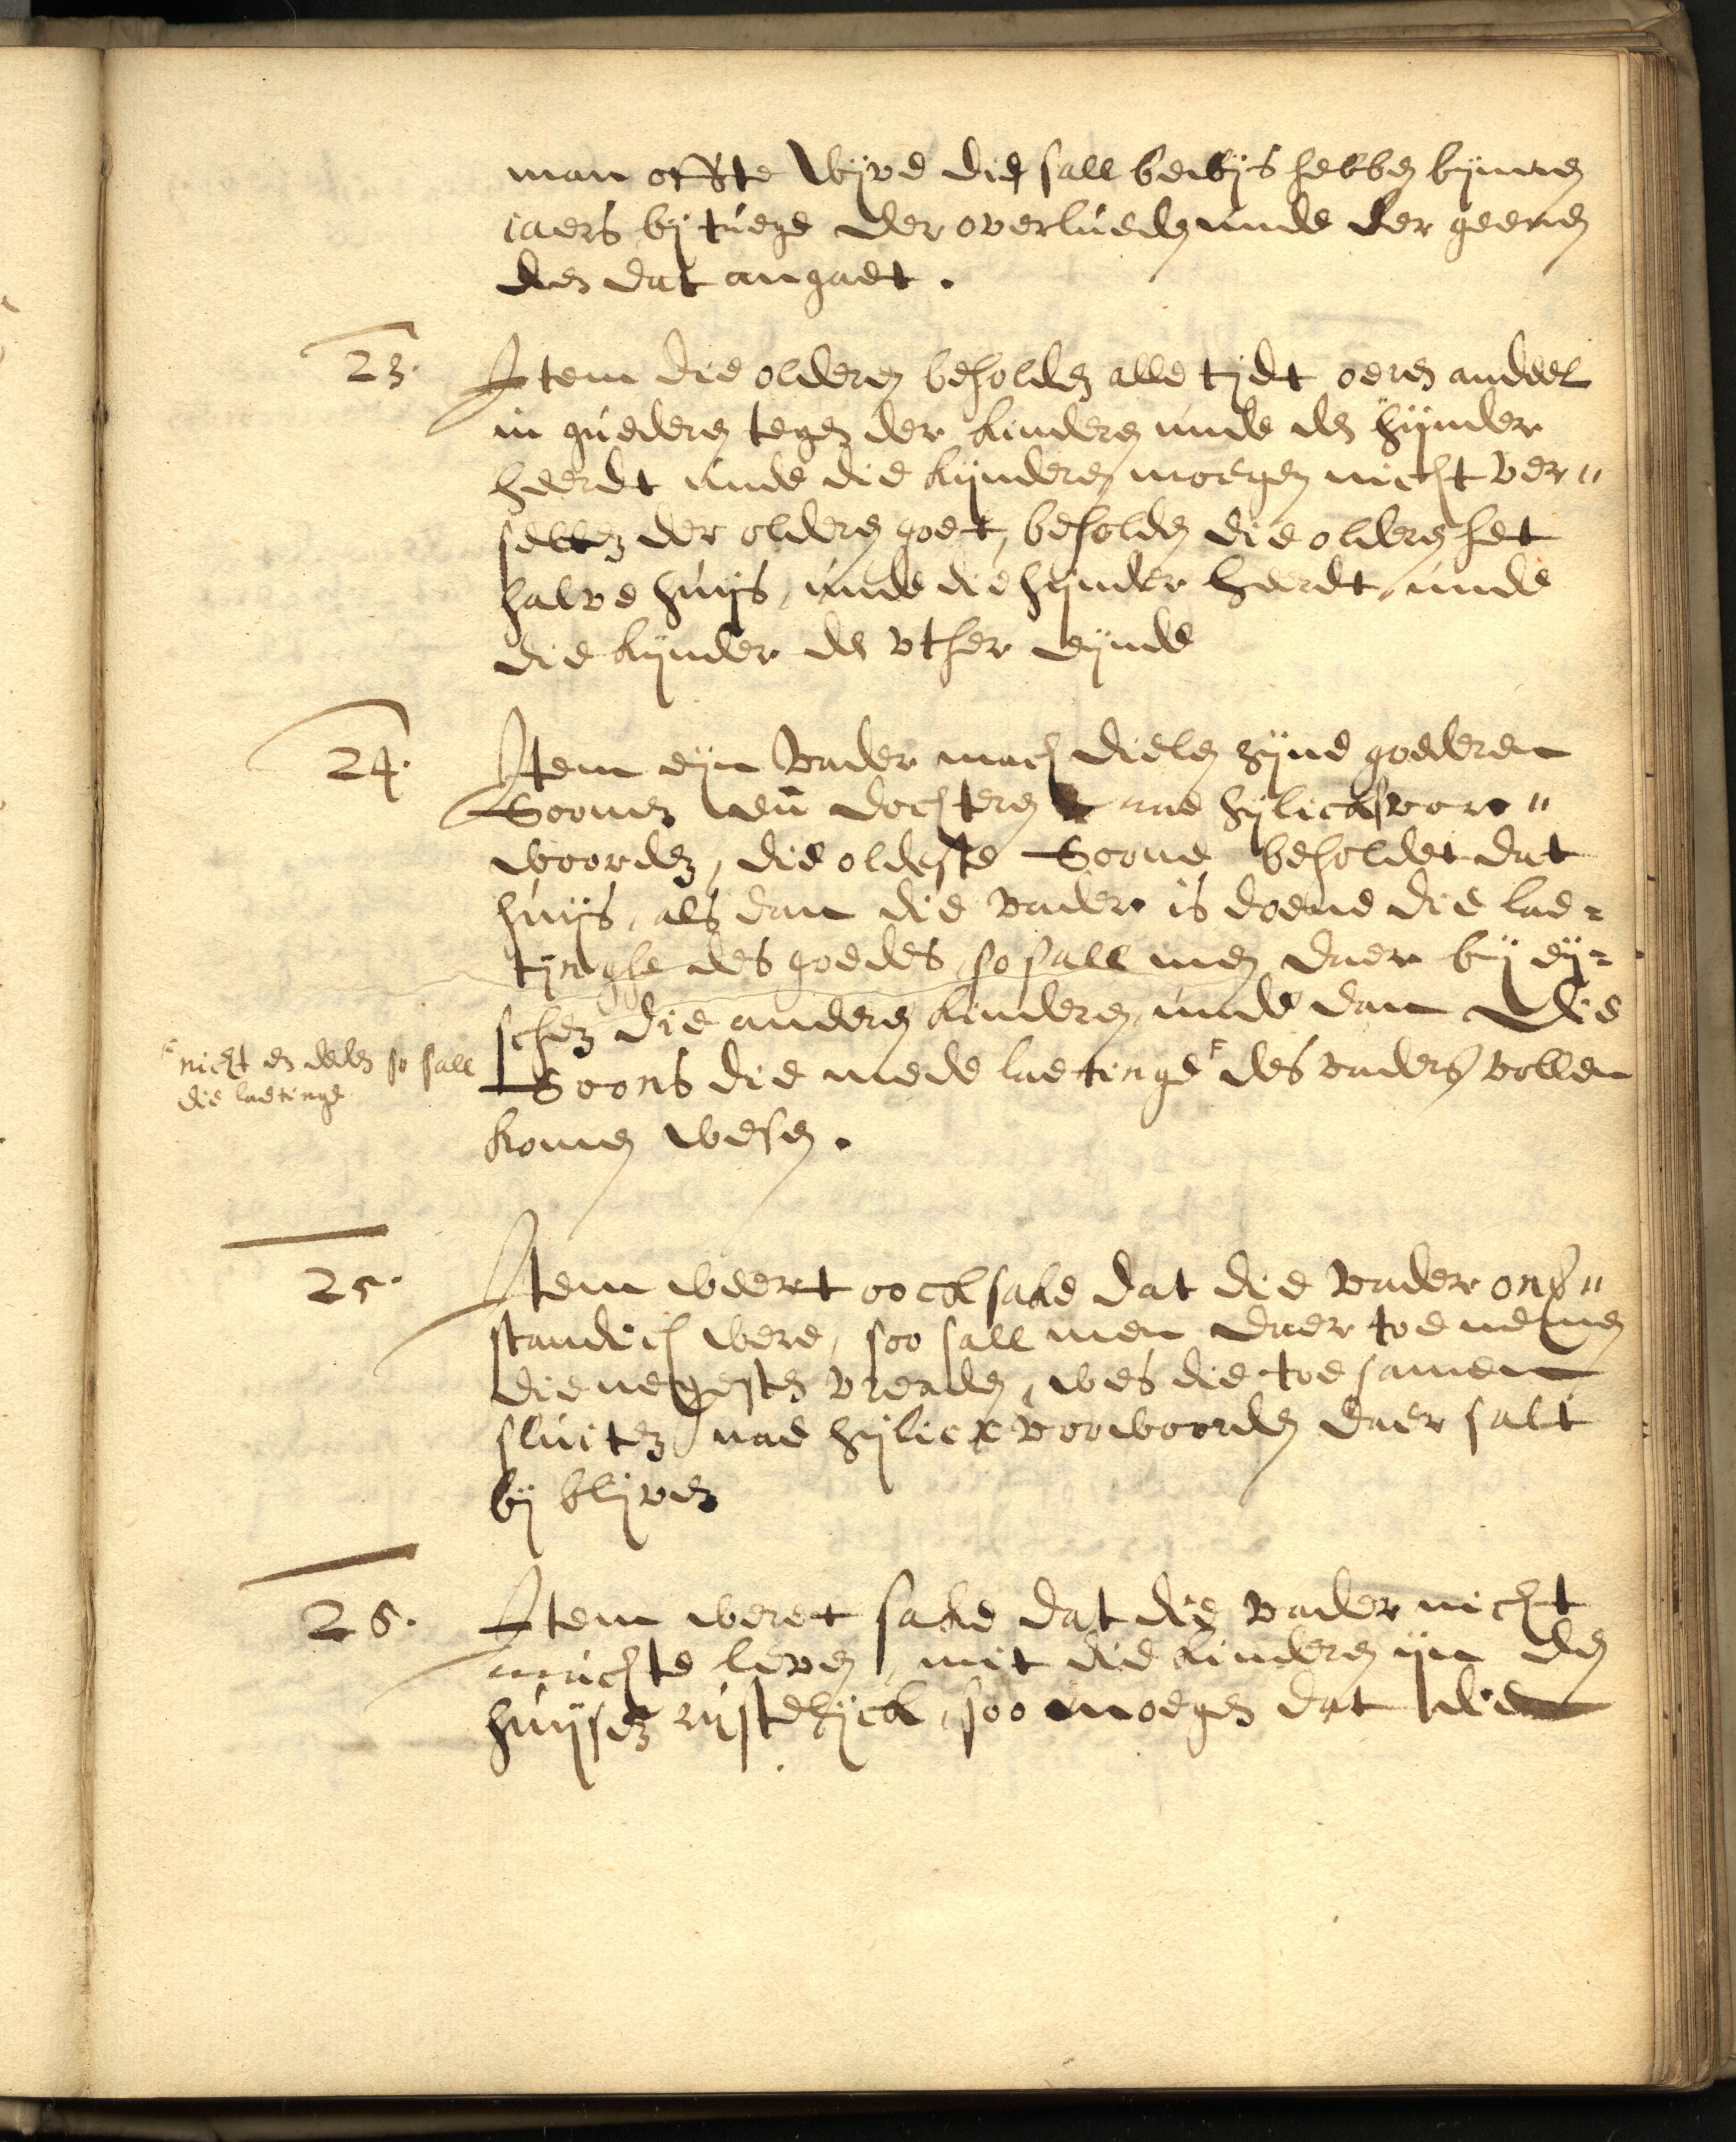 man offte wyve die sall bewys hebben bynnen
iaers by tuege der overlueden unde der geenen
den dat angaet.
23. Item die olderen beholden alle tydt oeren andeel
in guederen tegen der kinderen unde den hynder
heerdt unde die kynderen moegen nicht ver"
setten der olderen goet, beholden die olderen het
halve huys, unde die hynder heerdt, unde
die kynder de uther eynde
24. Item eyn vader mach dielen zyne goederen
Soonen un dochteren nae hylicksvor"
woorden, die oldeste Soone beholdet dat
huys, als dan die vader is doende die lae=
tynghe des goedes, so sall men daer by ey=
schen die anderen kinderen, unde dan die
Soons die mede laetinge F des vaders vollen
komen wesen.
F nicht en deden so sall
die laetinge
25. Item weert oock sake dat die vader onv"
standich were, soo sall men daer toe nemen
die negesten vrenden, wes die toe samen
sluiten nae hylicx voorwoorden daer salt
by blyven
26. Item weret sake dat die vader nicht
muchte leven, mit die kinderen yn den
huysen rustelyck, soo moegen dat die